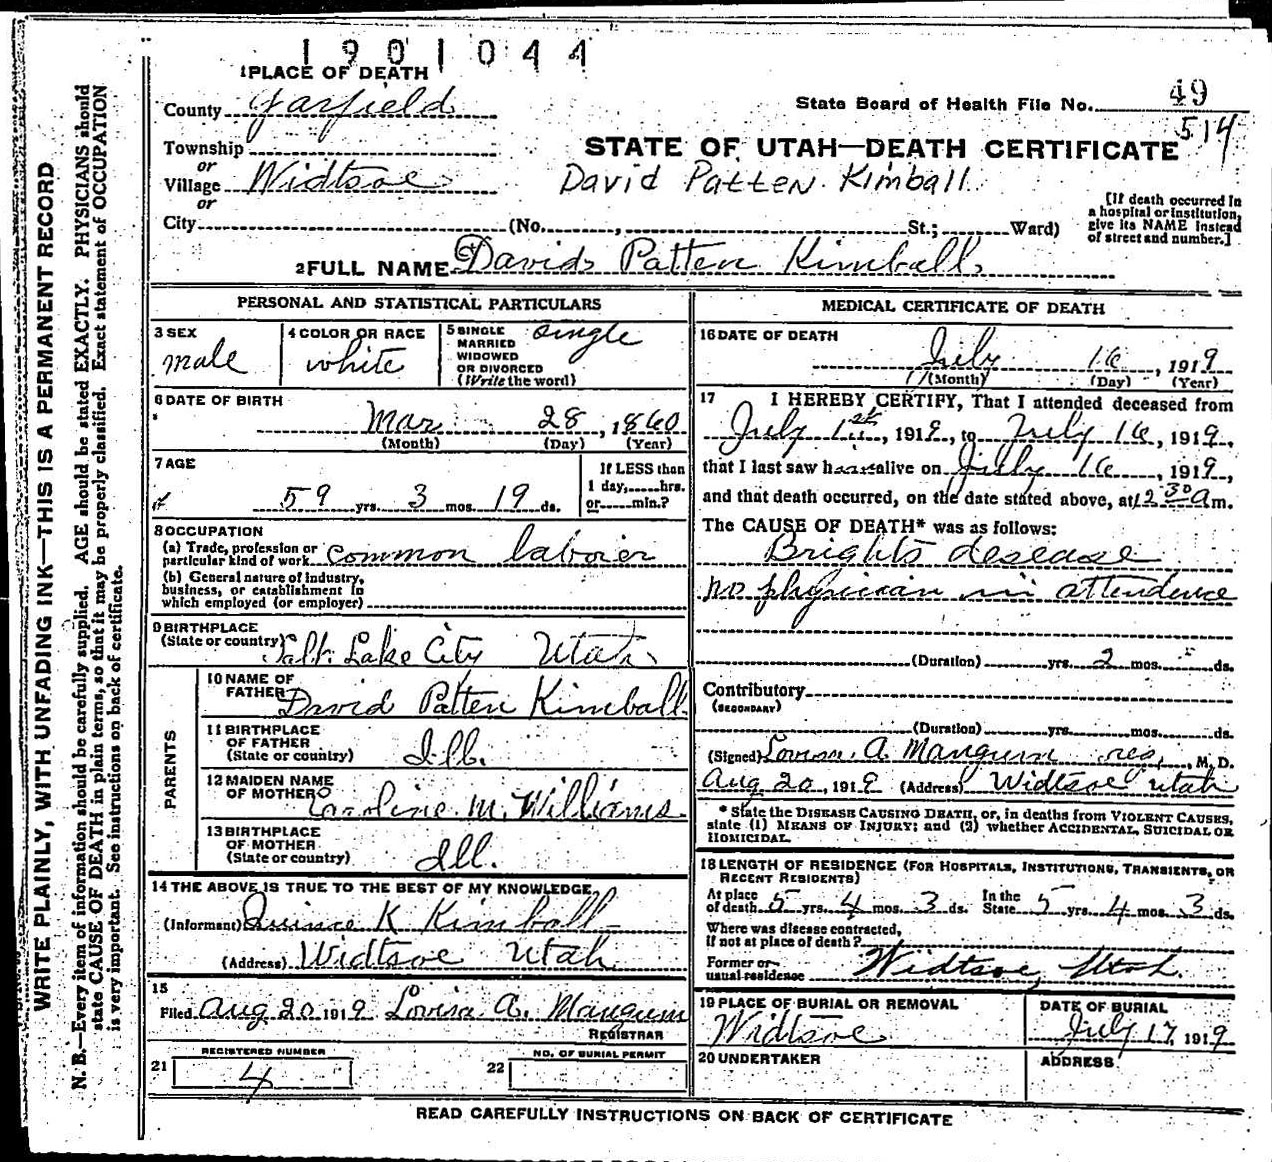 1901044
1 PLACE OF DEATH
County Garfield
State Board of Health File No. 49
514
Township
or
Village Widtsoe
or
City (No. , St.; Ward)
STATE OF UTAH—DEATH CERTIFICATE
David Patten Kimball
[If death occurred in
a hospital or institution,
give its NAME instead
of street and number.]
2 FULL NAME David Patten Kimball
PERSONAL AND STATISTICAL PARTICULARS
3 SEX
male
4 COLOR OR RACE
white
5 SINGLE
MARRIED
WIDOWED
OR DIVORCED
(Write the word)
single
6 DATE OF BIRTH
Mar 28, 1860
(Month) (Day) (Year)
7 AGE
59 yrs. 3 mos. 19 ds.
If LESS than
1 day, hrs.
or min.?
8 OCCUPATION
(a) Trade, profession or
particular kind of work common laborer
(b) General nature of industry,
business, or establishment in
which employed (or employer)
9 BIRTHPLACE
(State or country) Salt Lake City Utah
PARENTS
10 NAME OF
FATHER David Patten Kimball
11 BIRTHPLACE
OF FATHER
(State or country) Ill.
12 MAIDEN NAME
OF MOTHER Caroline M. Williams
13 BIRTHPLACE
OF MOTHER
(State or country) Ill.
14 THE ABOVE IS TRUE TO THE BEST OF MY KNOWLEDGE
(Informant) Quince K Kimball
(Address) Widtsoe Utah
15
Filed Aug 20 1919 Lovisa A. Mangum
REGISTRAR
REGISTERED NUMBER
21 4
NO. OF BURIAL PERMIT
22
MEDICAL CERTIFICATE OF DEATH
16 DATE OF DEATH
July 16, 1919
(Month) (Day) (Year)
17 I HEREBY CERTIFY, That I attended deceased from
July 1st, 1919, to July 16, 1919,
that I last saw h alive on July 16, 1919,
and that death occurred, on the date stated above, at 12 30 a m.
The CAUSE OF DEATH* was as follows:
Brights desease
no physician in attendence
(Duration) yrs. 2 mos. ds.
Contributory
(SECONDARY)
(Duration) yrs. mos. ds.
(Signed) Lovisa A. Mangum reg, M. D.
Aug 20, 1919 (Address) Widtsoe Utah
* State the DISEASE CAUSING DEATH, or, in deaths from VIOLENT CAUSES,
state (1) MEANS OF INJURY; and (2) whether ACCIDENTAL, SUICIDAL OR
HOMICIDAL.
18 LENGTH OF RESIDENCE (FOR HOSPITALS, INSTITUTIONS, TRANSIENTS, OR
RECENT RESIDENTS)
At place
of death 5 yrs. 4 mos. 3 ds. In the
State 5 yrs. 4 mos. 3 ds.
Where was disease contracted,
if not at place of death?
Former or
usual residence Widtsoe, Utah.
19 PLACE OF BURIAL OR REMOVAL
Widtsoe
DATE OF BURIAL
July 17, 1919
20 UNDERTAKER
ADDRESS
READ CAREFULLY INSTRUCTIONS ON BACK OF CERTIFICATE
WRITE PLAINLY, WITH UNFADING INK—THIS IS A PERMANENT RECORD
N. B.—Every item of information should be carefully supplied. AGE should be stated EXACTLY. PHYSICIANS should
state CAUSE OF DEATH in plain terms, so that it may be properly classified. Exact statement of OCCUPATION
is very important. See instructions on back of certificate.